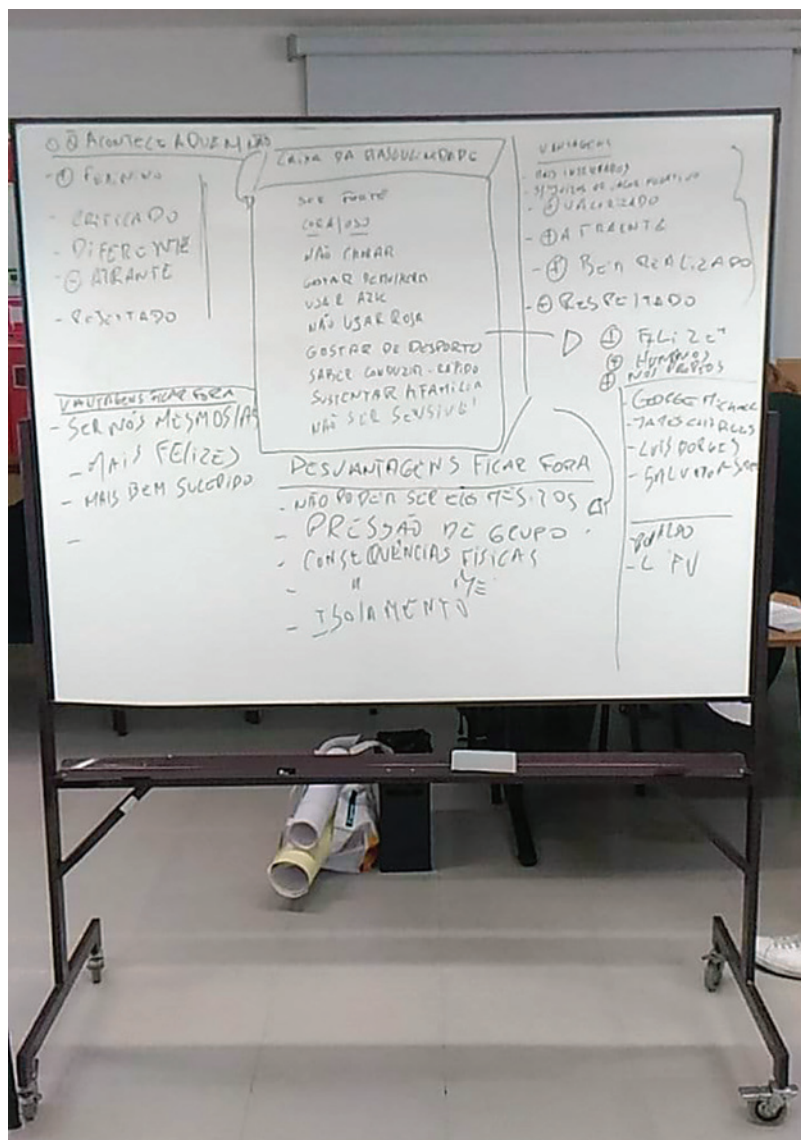 O Q ACONTECE A QUEM NÃO
- + FEMININO
- CRITICADO
- DIFERENTE
- - ATRANTE
- REJEITADO
VANTAGENS FICAR FORA
- SER NÓS MESMOS/AS
- MAIS FELIZES
- MAIS BEM SUCEDIDO
-
CAIXA DA MASCULINIDADE
SER FORTE
CORAJOSO
NÃO CHORAR
GOSTAR
USAR AZUL
NÃO USAR ROSA
GOSTAR DE DESPORTO
SABER CONDUZIR - RÁPIDO
SUSTENTAR A FAMÍLIA
NÃO SER SENSIVEL
DESVANTAGENS FICAR FORA
- NÃO PODEM SER ELES MESMOS
- PRESSÃO DE GRUPO
- CONSEQUÊNCIAS FÍSICAS
- "
- ISOLAMENTO
VANTAGENS
- NÃO
- S/ JUIZOS DE VALOR NEGATIVO
- + VALORIZADO
- + ATRAENTE
- + BEM REALIZADO
- + RESPEITADO
+ FELIZES
+ HUMANOS
+ NÓS PRÓPRIOS
- GEORGE MICHAEL
- JAMES CHARLES
- LUÍS BORGES
- SALVADOR
RONALDO